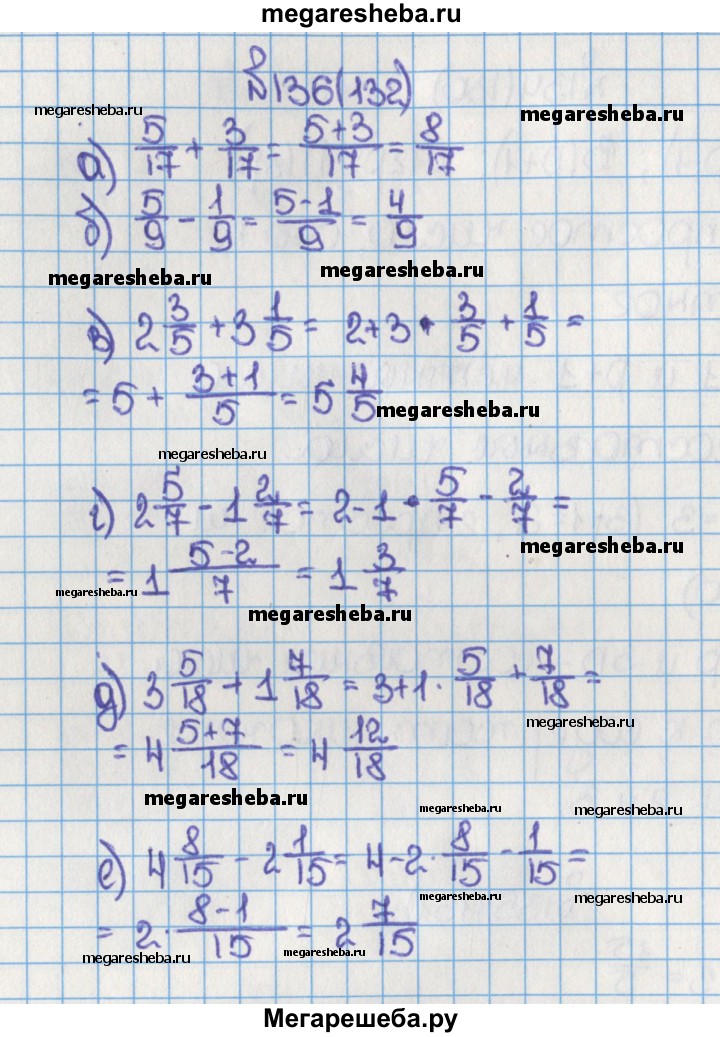 megaresheba.ru
№136(132)
megaresheba.ru
megaresheba.ru
а) 5/17 + 3/17 = (5+3)/17 = 8/17
б) 5/9 - 1/9 = (5-1)/9 = 4/9
megaresheba.ru
megaresheba.ru
в) 2 3/5 + 3 1/5 = 2+3 · 3/5 + 1/5 =
= 5 + (3+1)/5 = 5 4/5
megaresheba.ru
megaresheba.ru
г) 2 5/7 - 1 2/7 = 2-1 · 5/7 - 2/7 =
megaresheba.ru
= 1 (5-2)/7 = 1 3/7
megaresheba.ru
megaresheba.ru
д) 3 5/18 + 1 7/18 = 3+1 · 5/18 + 7/18 =
megaresheba.ru
= 4 (5+7)/18 = 4 12/18
megaresheba.ru
megaresheba.ru
megaresheba.ru
е) 4 8/15 - 2 1/15 = 4-2 · 8/15 - 1/15 =
megaresheba.ru
megaresheba.ru
= 2 · (8-1)/15 = 2 7/15
megaresheba.ru
megaresheba.ru
megaresheba.ru
Мегарешеба.ру